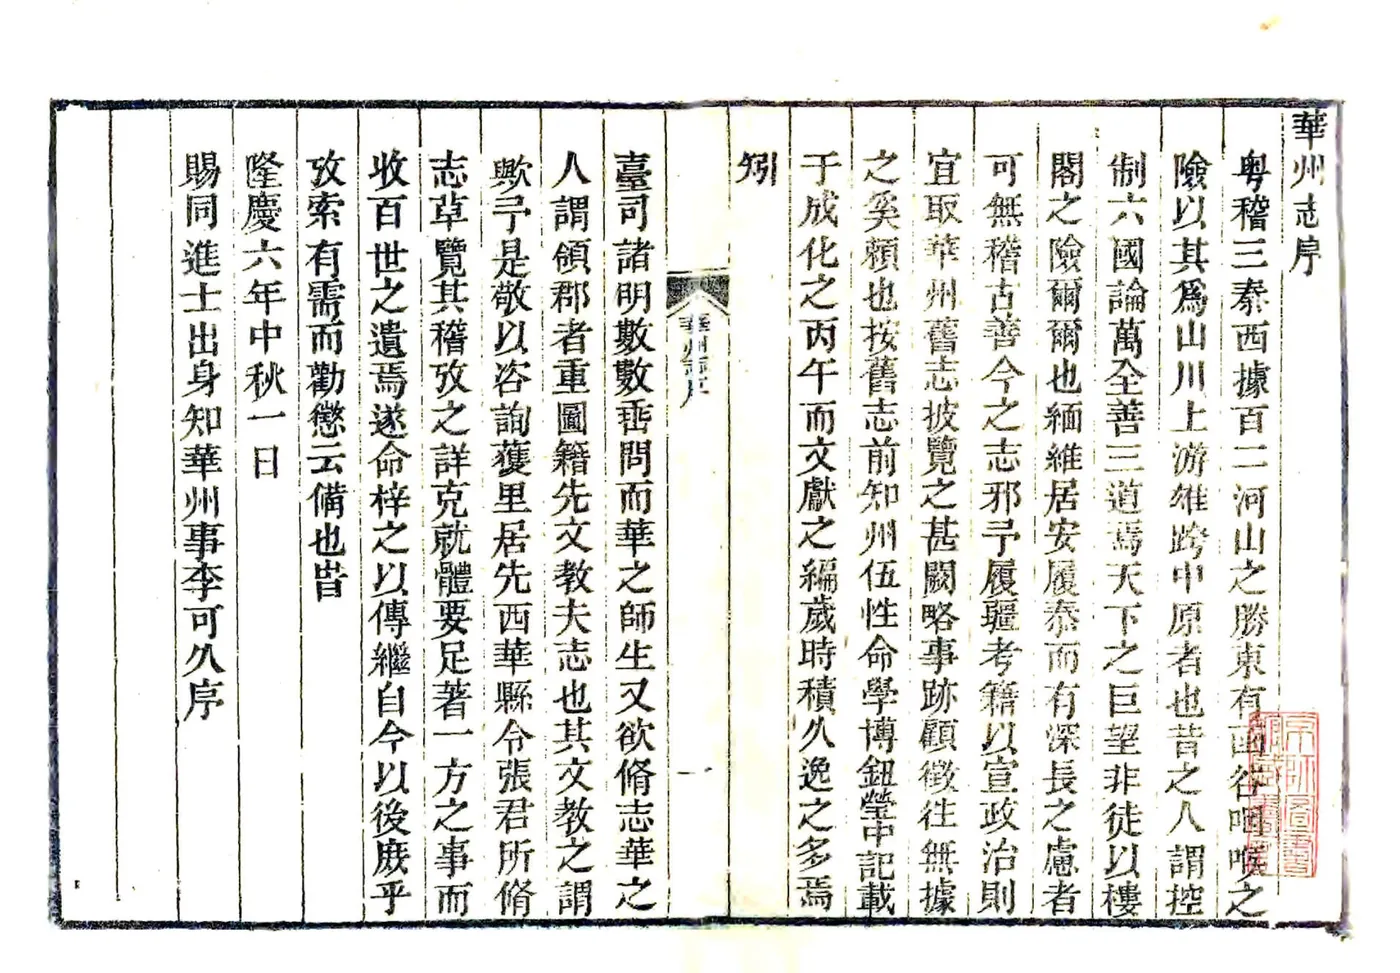 華州志序
粤稽三秦西據百二河山之勝東有函谷咽喉之
險以其爲山川上游維跨中原者也昔之人謂控
制六國論萬全善三道焉天下之巨望非徒以樓
閣之險爾爾也緬維居安履泰而有深長之慮者
可無稽古善今之志邪予履疆考籍以宣政治則
宜取華州舊志披覽之甚闕略事跡顧徵往無據
之奚賴也按舊志前知州伍性命學博鈕瑩中記載
于成化之丙午而文獻之編歲時積久逸之多焉
矧
華州志序
一
臺司諸明數數垂問而華之師生又欲脩志華之
人謂領郡者重圖籍先文教夫志也其文教之謂
歟予是敬以咨詢獲里居先西華縣令張君所脩
志草覽其稽攷之詳克就體要足著一方之事而
收百世之遺焉遂命梓之以傳繼自今以後庶乎
攷索有需而勸懲云備也旹
隆慶六年中秋一日
賜同進士出身知華州事李可久序
京師圖書